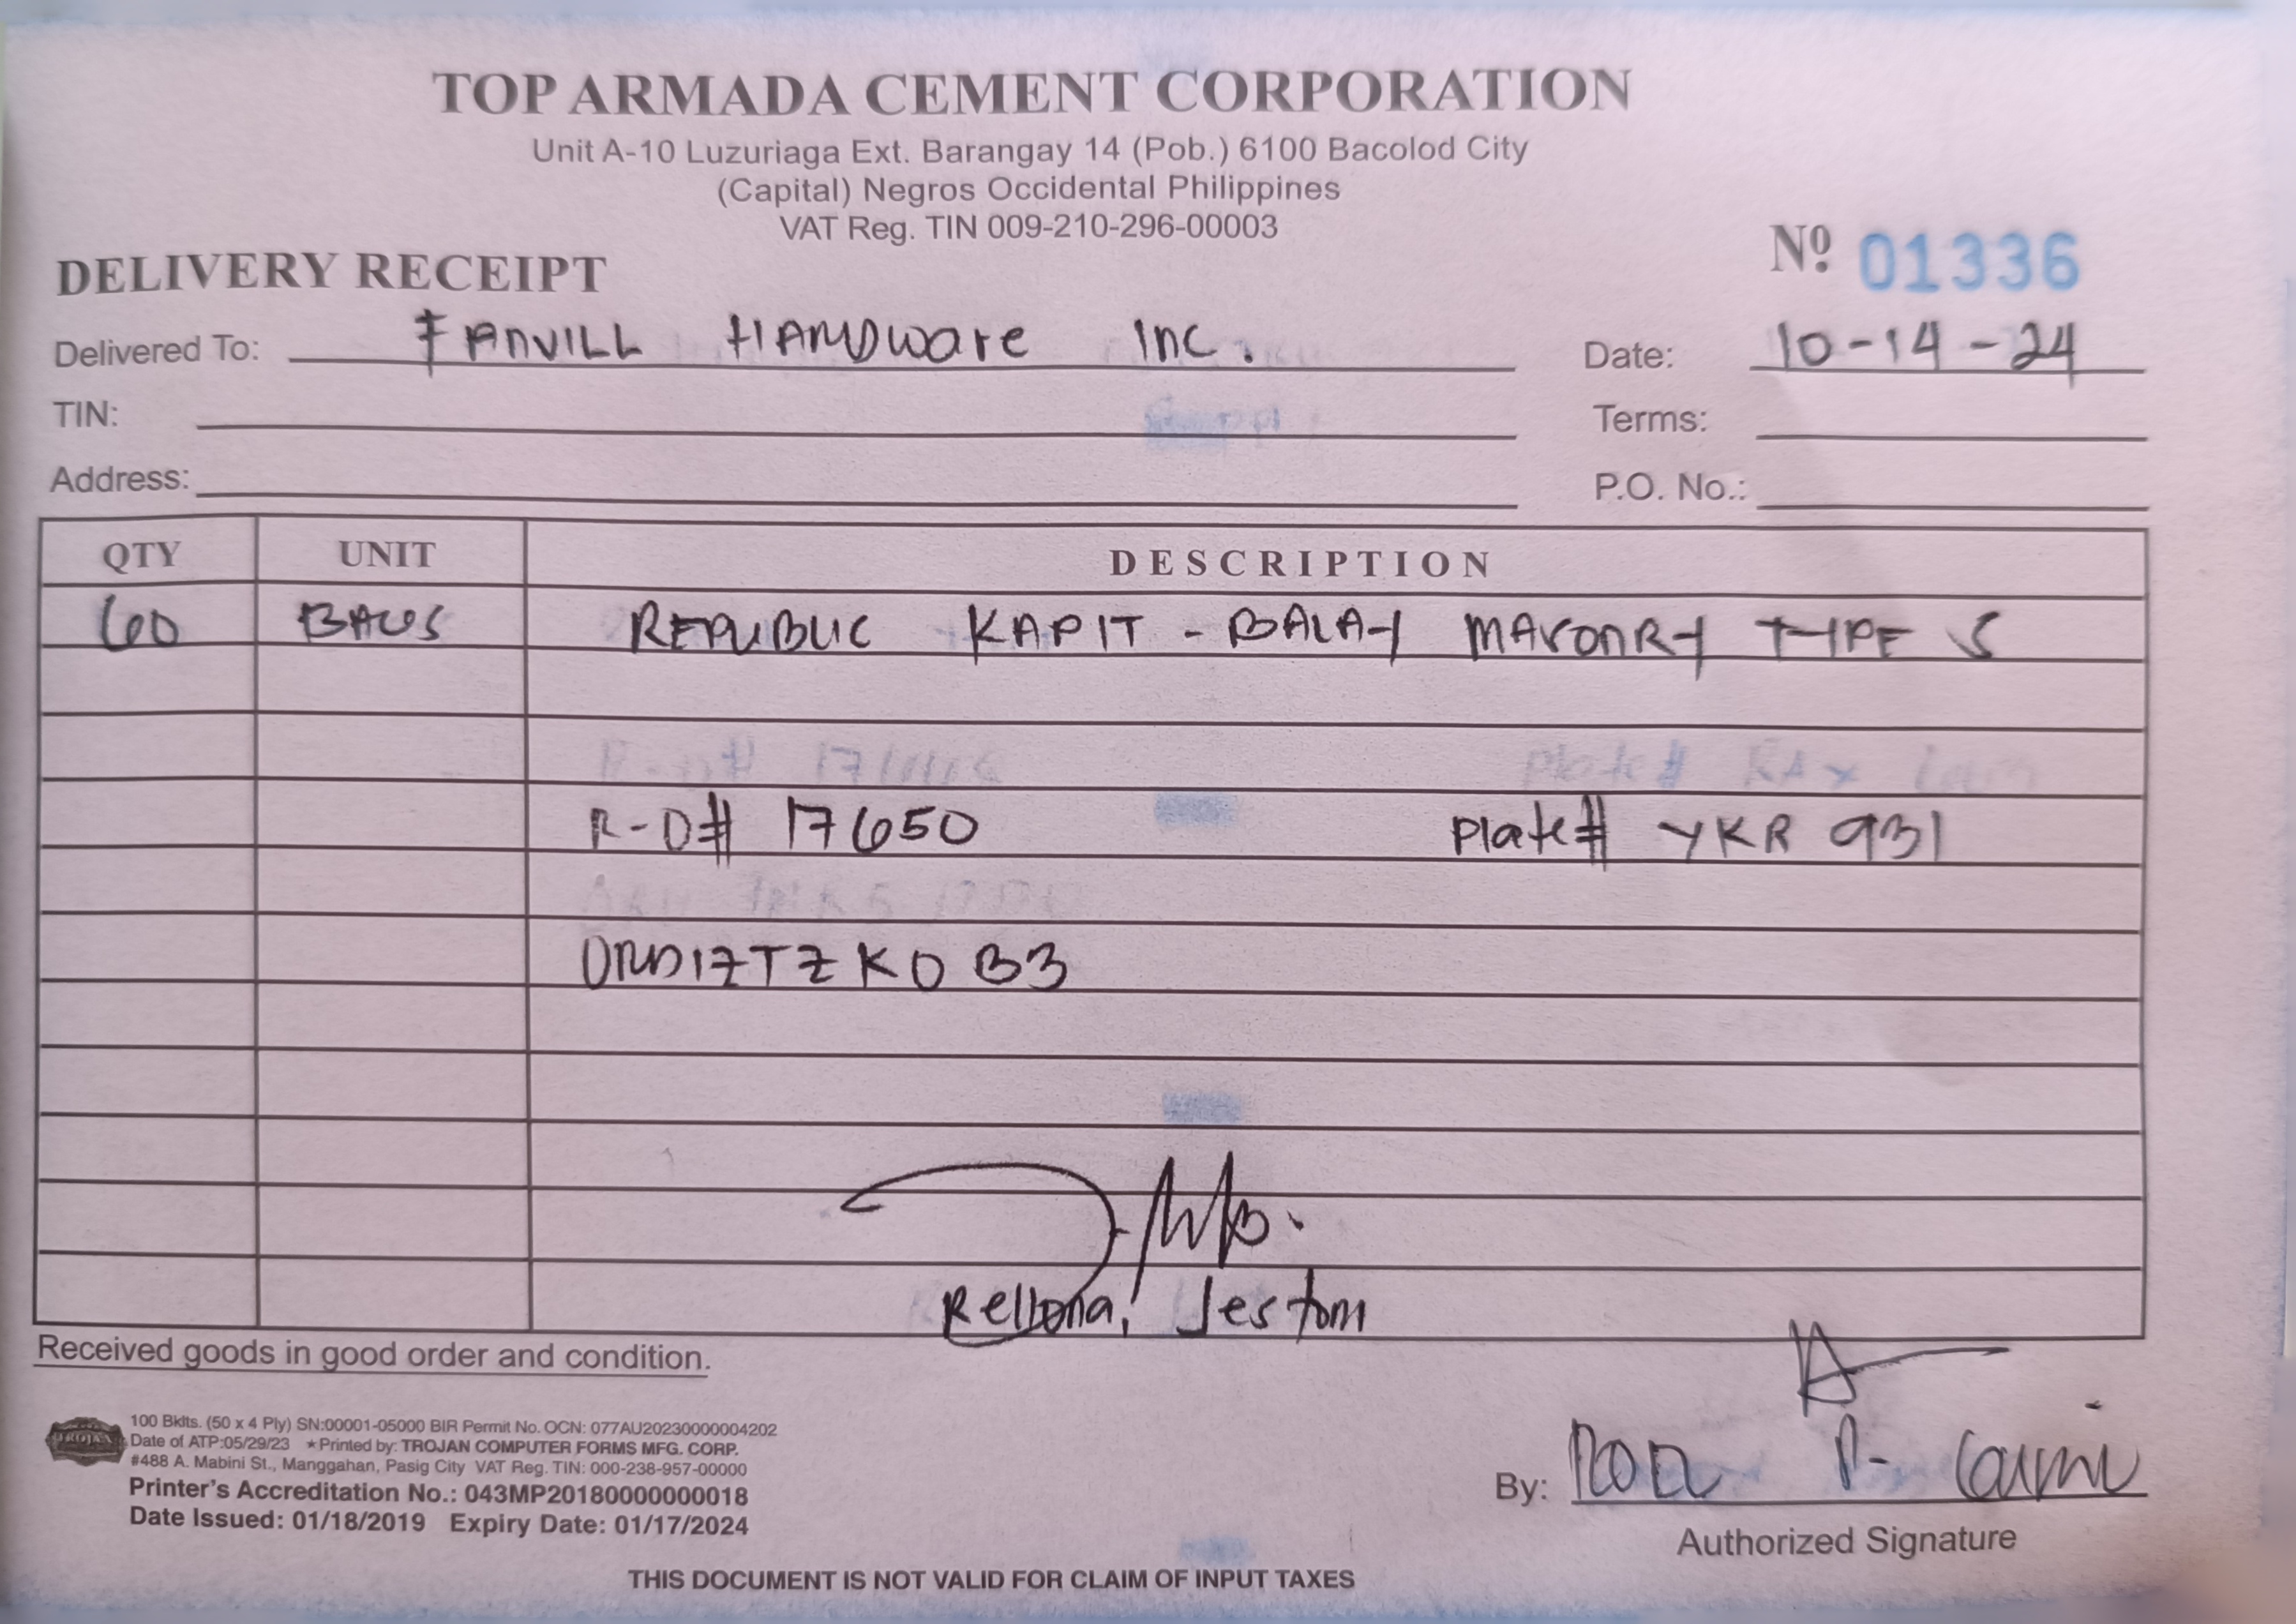 TOP ARMADA CEMENT CORPORATION
Unit A-10 Luzuriaga Ext. Barangay 14 (Pob.) 6100 Bacolod City
(Capital) Negros Occidental Philippines
VAT Reg. TIN 009-210-296-00003
DELIVERY RECEIPT
Nº 01336
Delivered To: FANVILL HARDware Inc.
Date: 10-14-24
TIN:
Terms:
Address:
P.O. No.:
QTY UNIT DESCRIPTION
60 BAGS REPUBLIC KAPIT-BALAY MASONRY TYPE S
R-O# 17650 Plate# YKR 931
Rellona, Jestom
Received goods in good order and condition.
TROJAN
100 Bklts. (50 x 4 Ply) SN:00001-05000 BIR Permit No. OCN: 077AU20230000004202
Date of ATP:05/29/23 ★Printed by: TROJAN COMPUTER FORMS MFG. CORP.
#488 A. Mabini St., Manggahan, Pasig City VAT Reg. TIN: 000-238-957-00000
Printer's Accreditation No.: 043MP20180000000018
Date Issued: 01/18/2019 Expiry Date: 01/17/2024
By:
Authorized Signature
THIS DOCUMENT IS NOT VALID FOR CLAIM OF INPUT TAXES